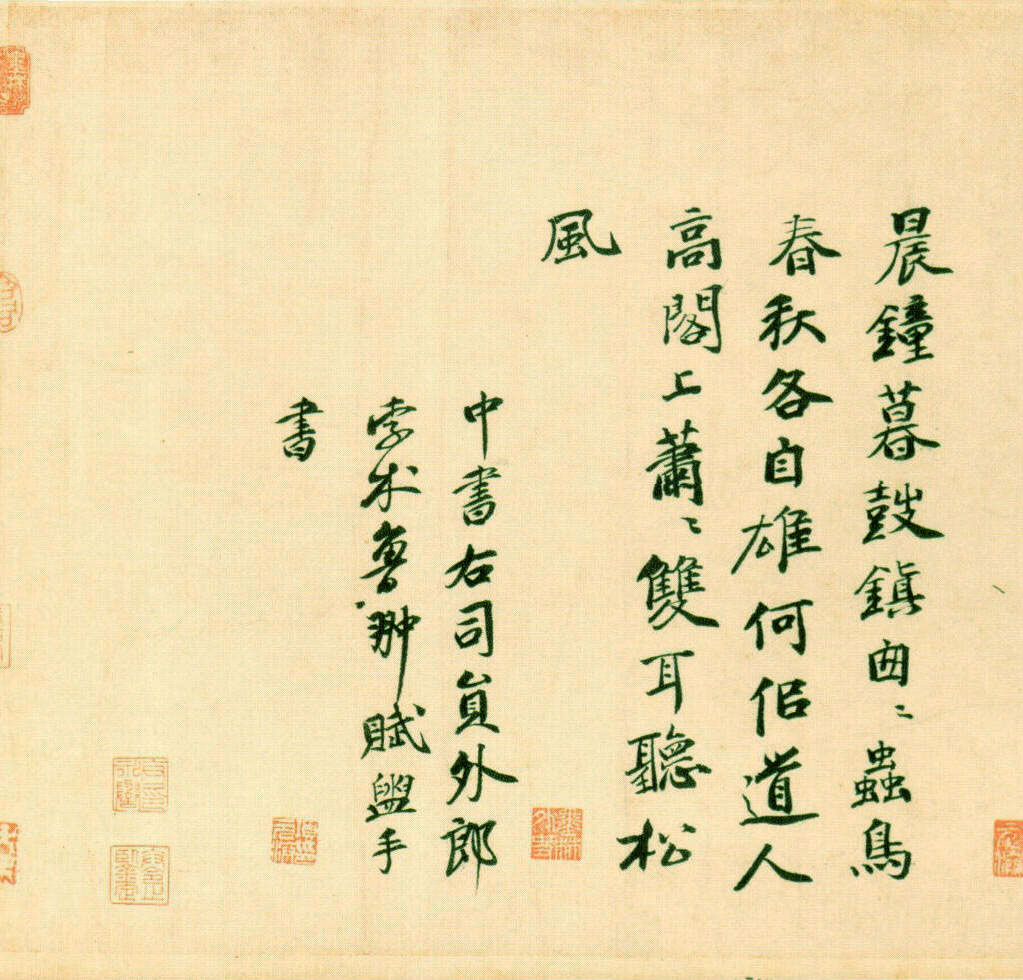 晨鐘暮鼓鎮匆〻蟲鳥
春秋各自雄何侣道人
高閣上蕭〻雙耳聽松
風
中書右司員外郎
孛术魯翀賦盥手
書